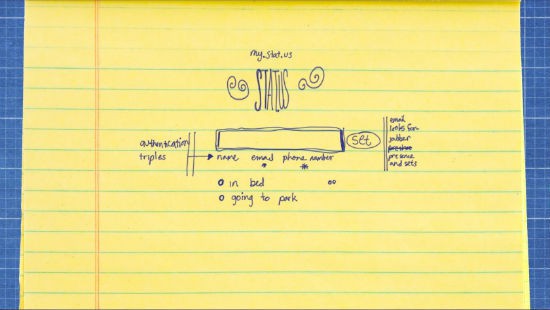 my.stat.us
STATUS
set
authentication
triples
name email phone number
in bed
going to park
email
looks for
jabber
presence
and sets